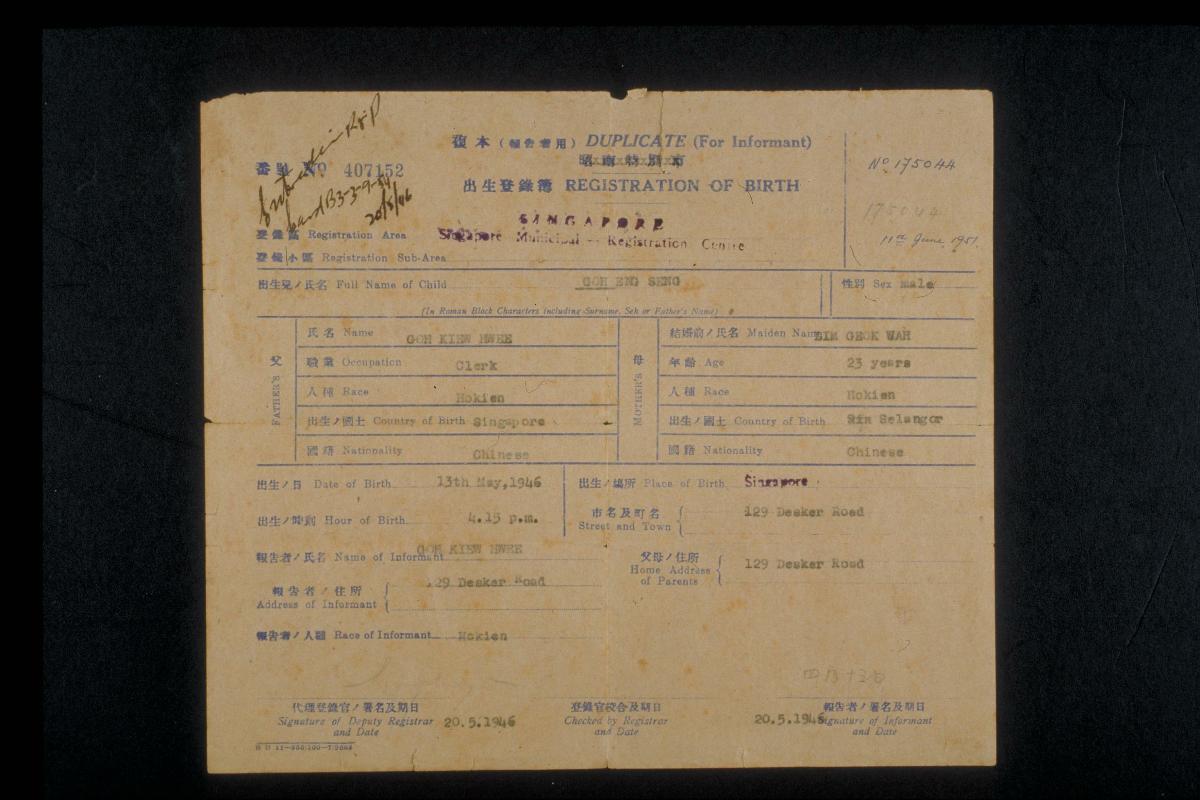 複本 (報告者用) DUPLICATE (For Informant)
昭南特別市
番號 № 407152
出生登錄簿 REGISTRATION OF BIRTH
Nº 175044
175044
11th June, 1951.
card B3-3-9-
20/5/46
SINGAPORE
登錄區 Registration Area Singapore Municipal -- Registration Centre
登錄小區 Registration Sub-Area
出生兒ノ氏名 Full Name of Child GOH ENG SENG
性別 Sex male
(In Roman Block Characters including Surname, Seh or Father's Name)
父 FATHER'S
氏名 Name GOH KIEW HWEE
職業 Occupation Clerk
人種 Race Hokien
出生ノ國土 Country of Birth Singapore
國籍 Nationality Chinese
母 MOTHER'S
結婚前ノ氏名 Maiden Name LIM GEOK WAH
年齡 Age 23 years
人種 Race Hokien
出生ノ國土 Country of Birth Selangor
國籍 Nationality Chinese
出生ノ日 Date of Birth 13th May, 1946
出生ノ場所 Place of Birth Singapore
出生ノ時刻 Hour of Birth 4.15 p.m.
市名及町名 129 Desker Road
Street and Town
報告者ノ氏名 Name of Informant GOH KIEW HWEE
父母ノ住所
Home Address 129 Desker Road
of Parents
報告者ノ住所 129 Desker Road
Address of Informant
報告者ノ人種 Race of Informant Hokien
代理登錄官ノ署名及期日
Signature of Deputy Registrar 20.5.1946
and Date
登錄官檢合及期日
Checked by Registrar
and Date
報告者ノ署名及期日
20.5.1946 Signature of Informant
and Date